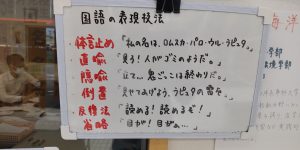 国語の表現技法
体言止め 「私の名は、ロムスカ・パロ・ウル・ラピュタ。」
直喩 「見ろ!人がゴミのようだ。」
隠喩 「立て。鬼ごっこは終わりだ。」
倒置 「見せてあげよう、ラピュタの雷を。」
反復法 「読める!読めるぞ!」
省略 「目が!目がぁ…」
海洋
学部